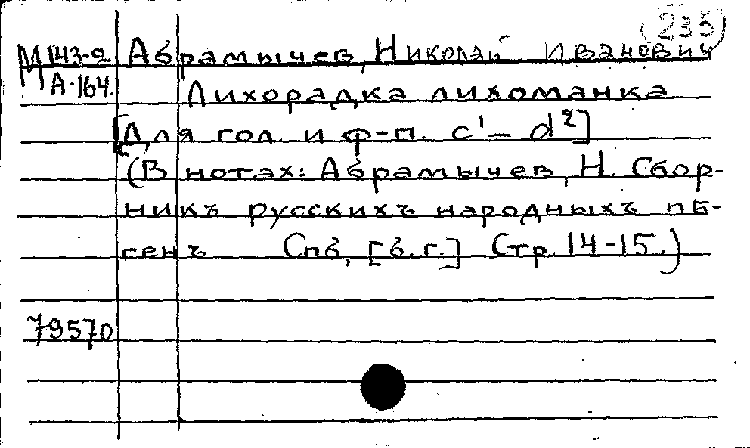 (235)
М143-2 Абрамычев, Николай Иванович
А-164. Лихорадка лихоманка
[Для гол. и ф-п. c¹ – d²]
(В нотах: Абрамычев, Н. Сбор-
никъ русскихъ народныхъ пѣ-
сенъ Спб, [б.г.] Стр. 14-15.)
79570